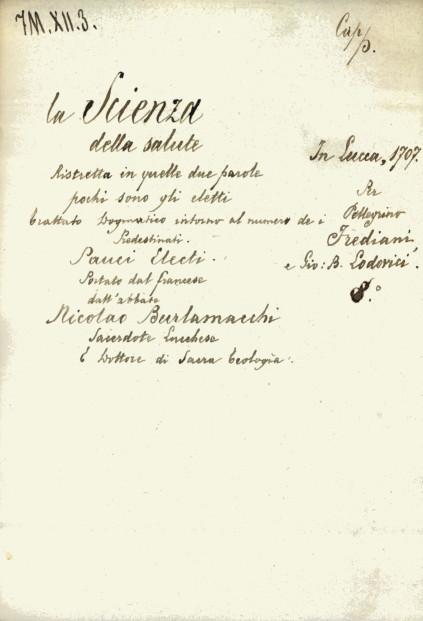 7M.XII.3.
Capp.
la Scienza
della salute
Ristretta in quelle due parole
pochi sono gli eletti
Trattato Dogmatico intorno al numero de i
Predestinati.
Pauci Electi.
Portato dal francese
dall'abbate
Nicolao Burlamacchi
Sacerdote Lucchese
E Dottore di Sacra Teologia.
In Lucca, 1707.
Per
Pellegrino
Frediani,
e Gio: B. Lodovici.
8.º